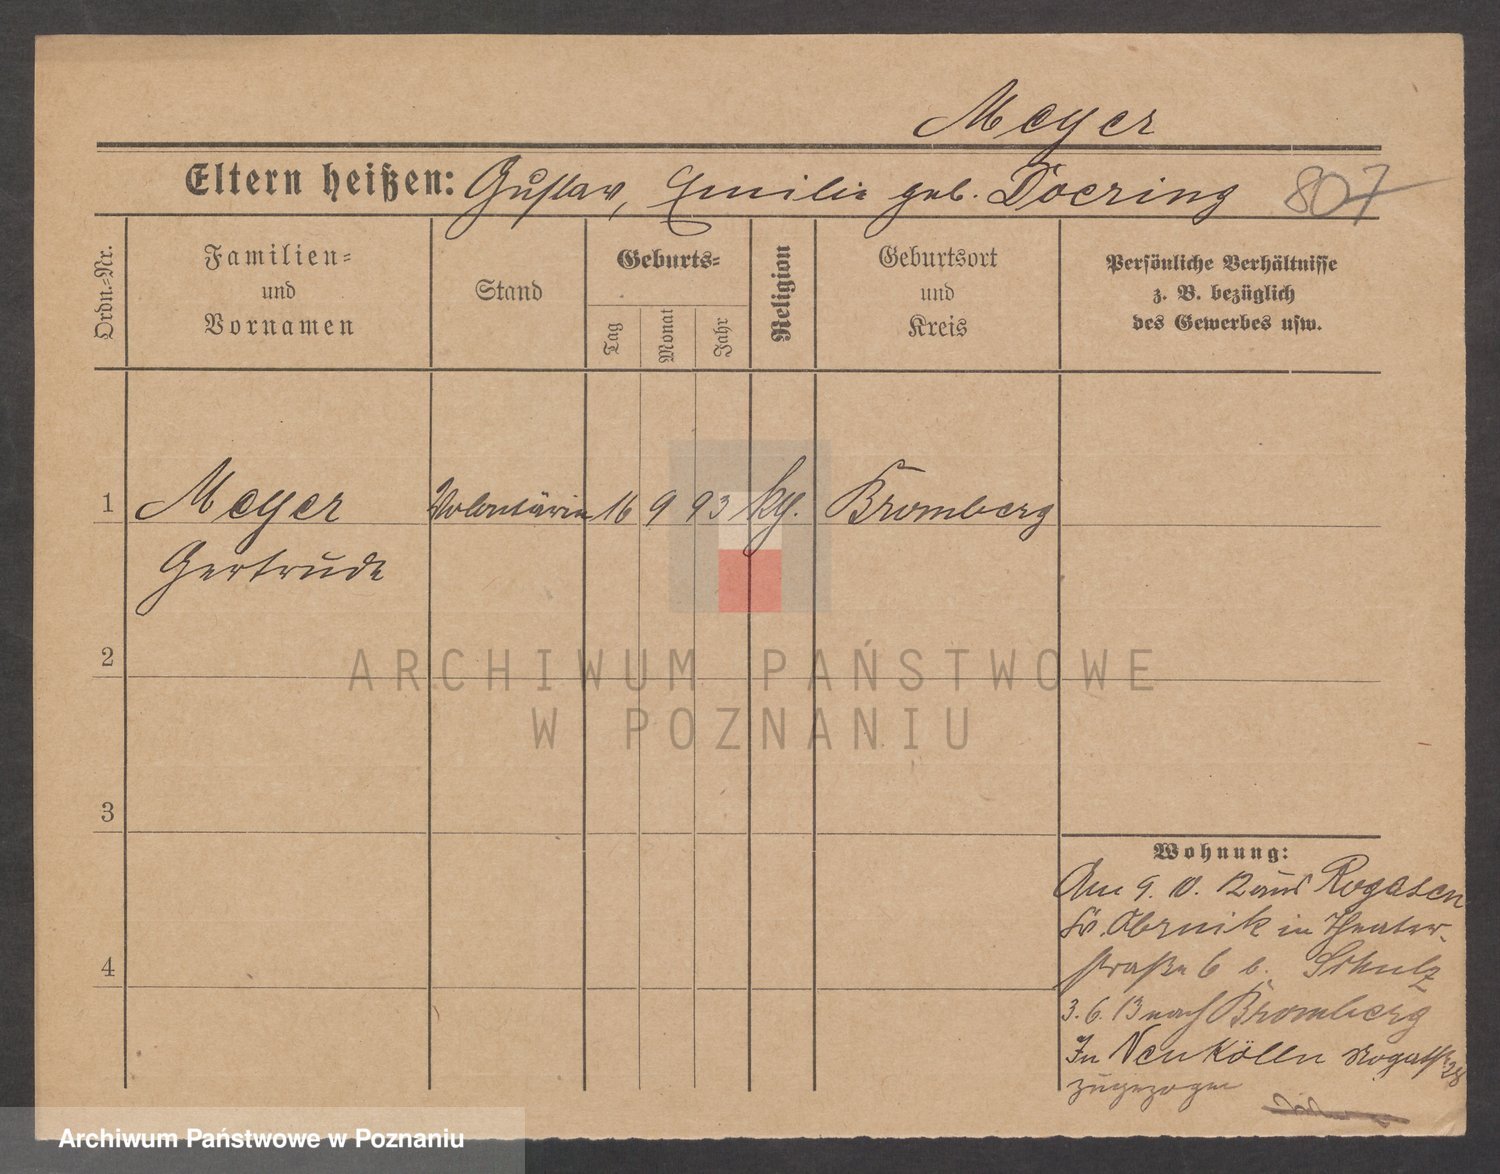 Meyer
Eltern heißen: Gustav, Emilie geb. Doering 807
Ordn.-Nr.
Familien-
und
Vornamen
Stand
Geburts-
Tag
Monat
Jahr
Religion
Geburtsort
und
Kreis
Persönliche Verhältnisse
z. B. bezüglich
des Gewerbes usw.
1 Meyer Volontärin 16 9 93 Bromberg
Gertrude
2
3
4
Wohnung:
Am 9. 10. 12 aus Rogasen
Kr. Obornik in Theater-
straße 6 b. Schulz
3. 6. 13 nach Bromberg
In Neukölln 28
zugezogen
ARCHIWUM PAŃSTWOWE
W POZNANIU
Archiwum Państwowe w Poznaniu